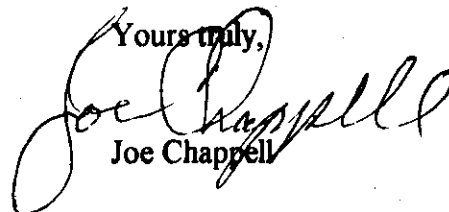 Yours truly,
Joe Chappell
Joe Chappell